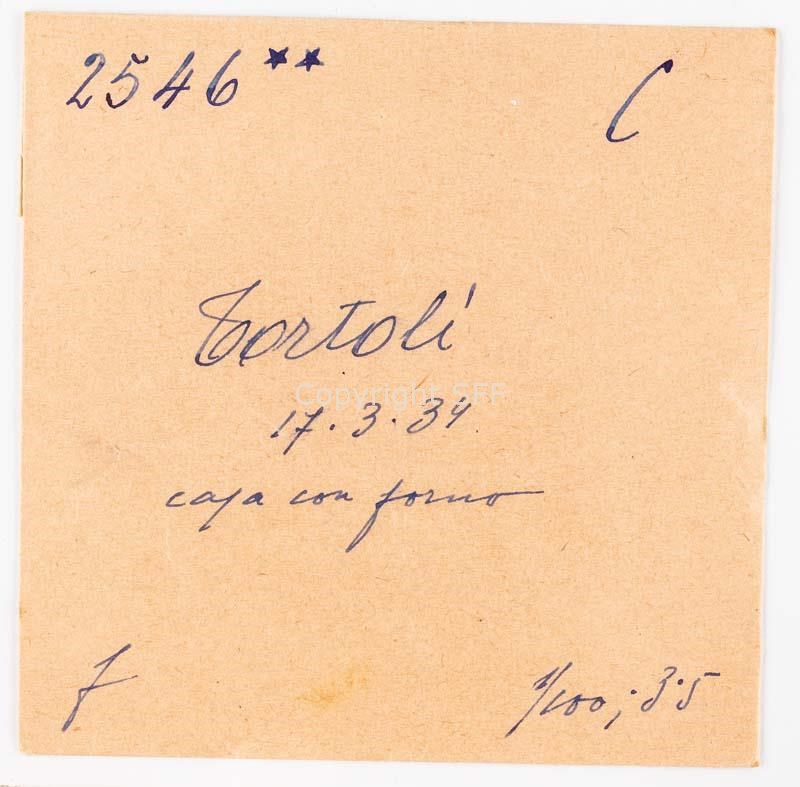 2546** C
Tortolí
Copyright SFF
17.3.34
casa con forno
f 1/100; 3.5